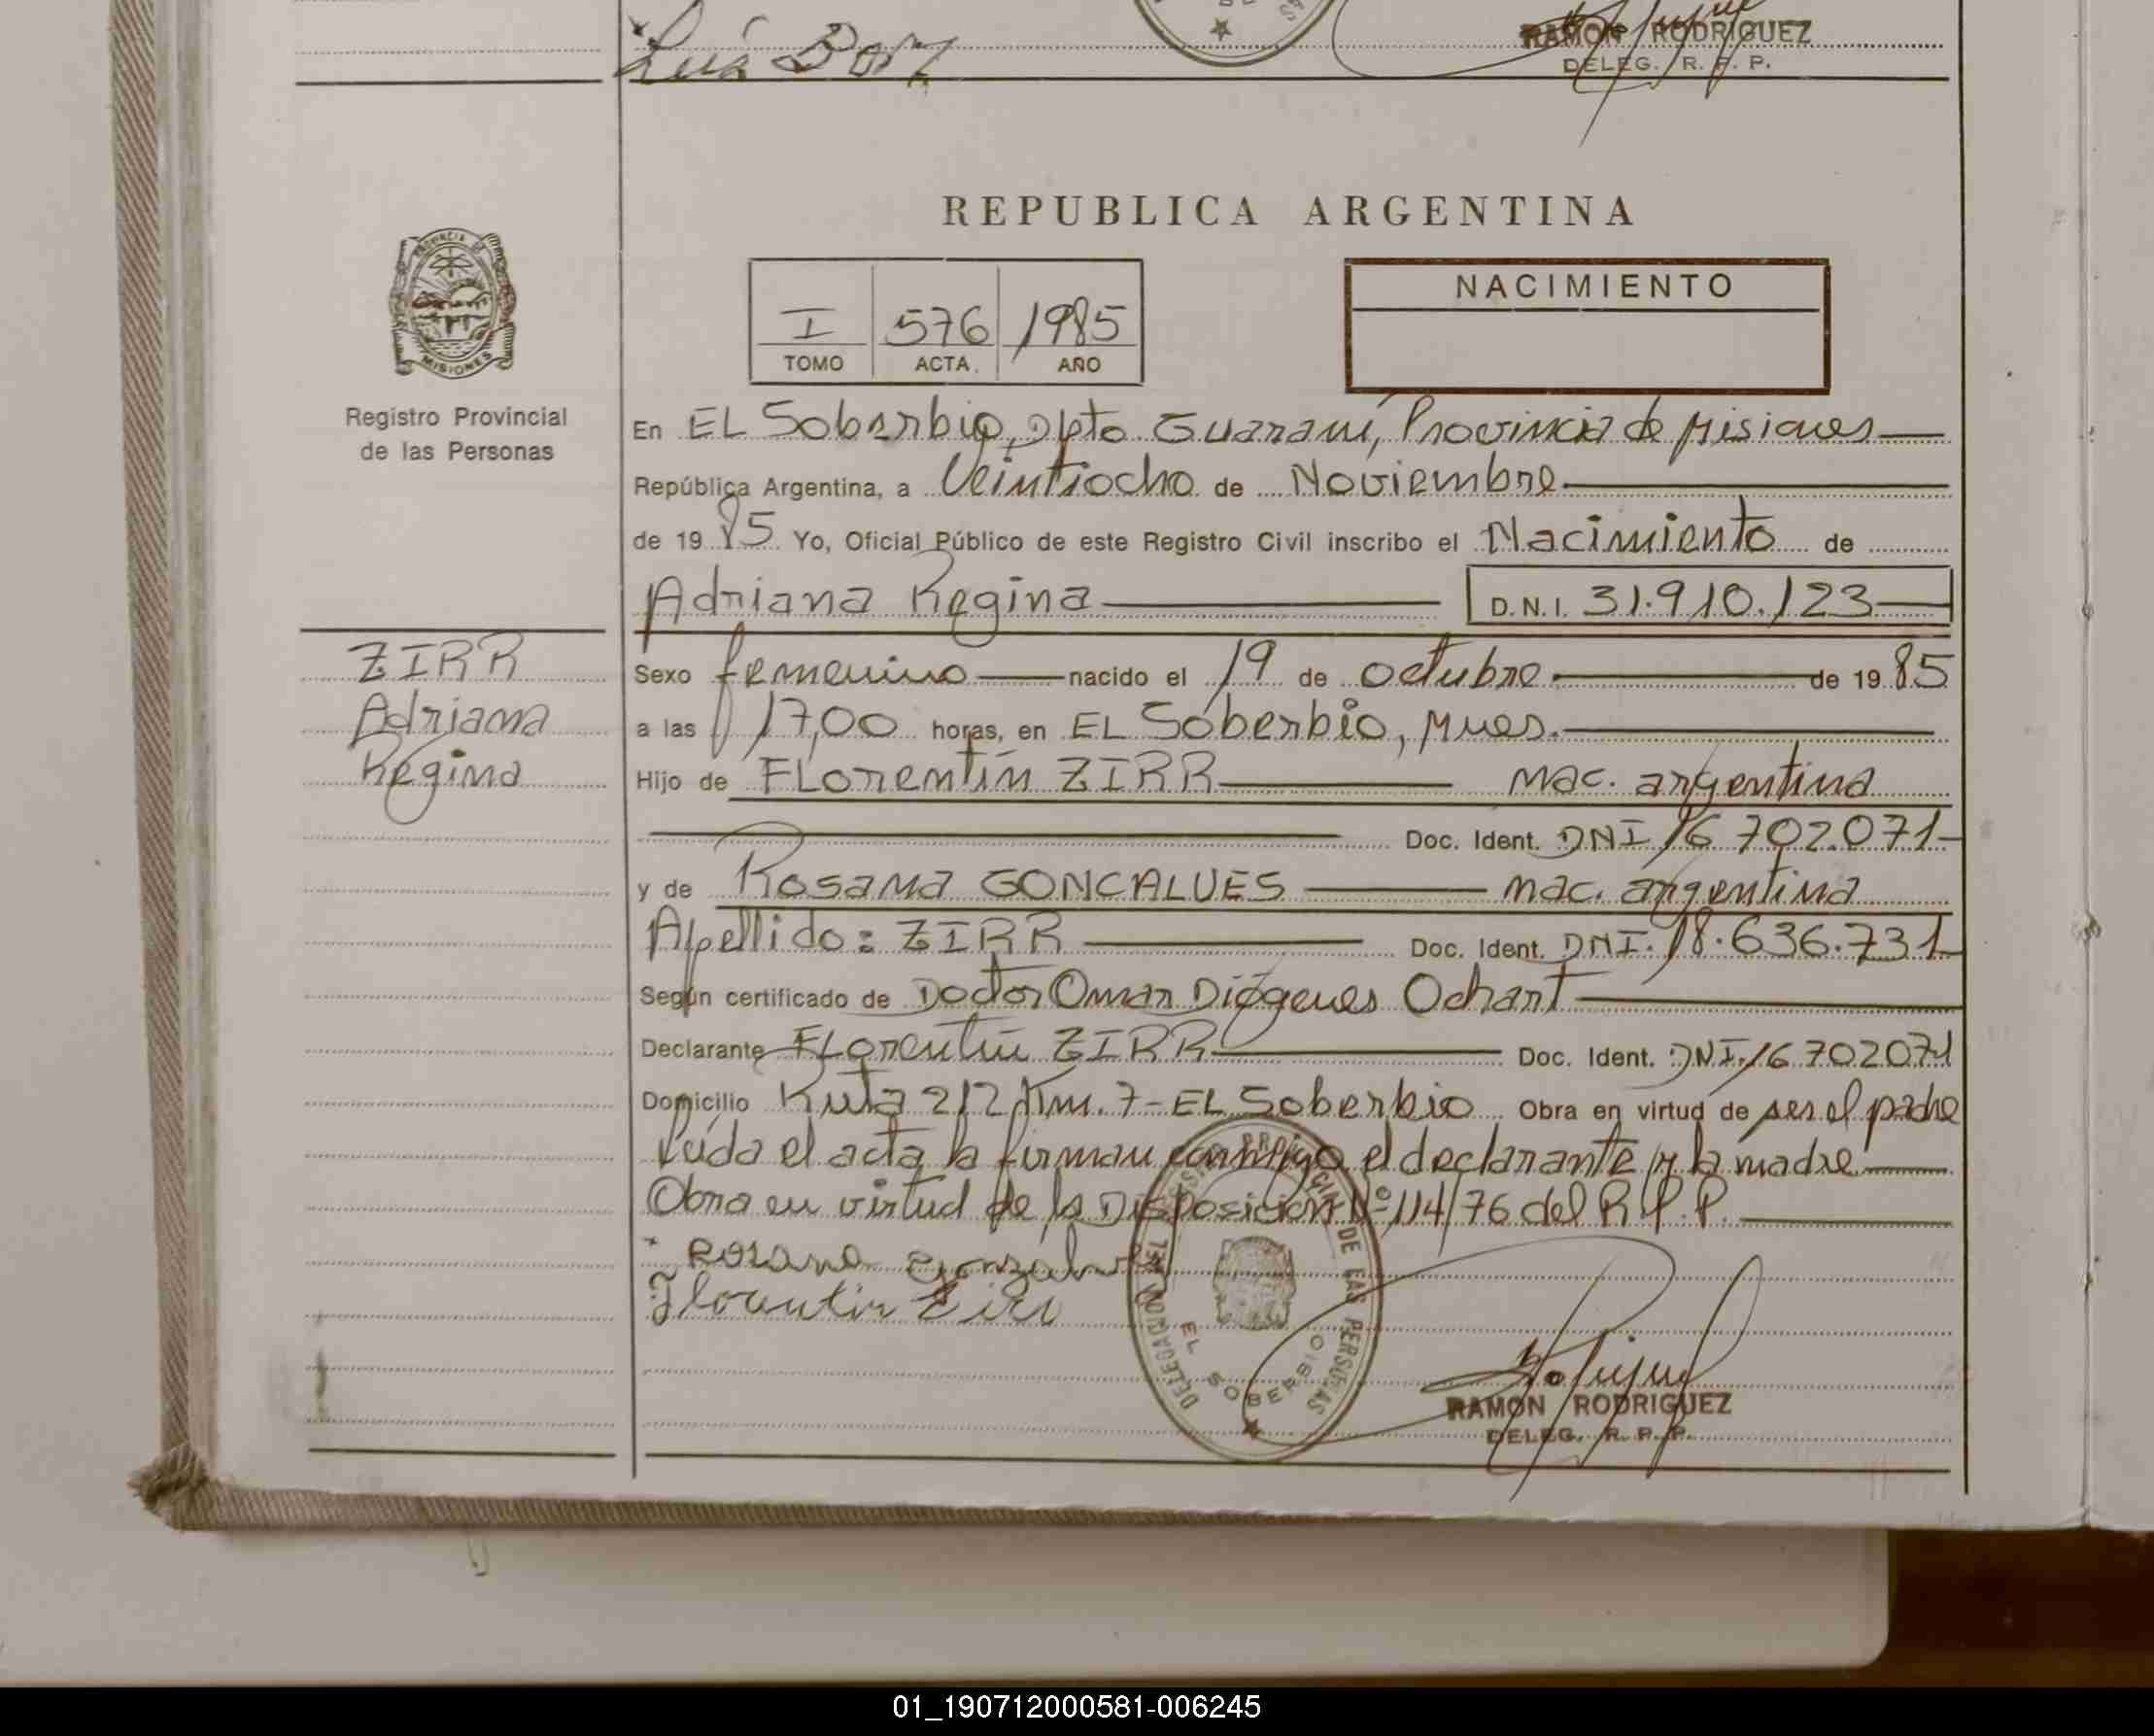 Luis
RAMON RODRIGUEZ
DELEG. R. P. P.
REPUBLICA ARGENTINA
PROVINCIA DE MISIONES
Registro Provincial
de las Personas
I 576 1985
TOMO ACTA. AÑO
NACIMIENTO
En EL Soberbio, Dpto Guaraní, Provincia de Misiones
República Argentina, a Veintiocho de Noviembre
de 19 85 Yo, Oficial Público de este Registro Civil inscribo el Nacimiento de
Adriana Regina D.N.I. 31.910.123
ZIRR
Adriana
Regina
Sexo femenino nacido el 19 de octubre de 19 85
a las 17,00 horas, en EL Soberbio, Mnes.
Hijo de FLorentín ZIRR nac. argentina
Doc. Ident. DNI 16 702.071
y de Rosana GONCALVES nac. argentina
Apellido: ZIRR Doc. Ident. DNI. 18.636.731
Según certificado de Doctor Omar Diógenes Ochart
Declarante FLorentín ZIRR Doc. Ident. DNI. 16 702071
Domicilio Ruta 212 Km. 7 - EL Soberbio Obra en virtud de ser el padre
Leída el acta, la firman conmigo el declarante y la madre
Obra en virtud de la Disposición Nº 114/76 del R.P.P.
Rosana
Florentin Zirr
DELEGACION DE LAS PERSONAS
EL SOBERBIO
RAMON RODRIGUEZ
DELEG. R. P. P.
01_190712000581-006245